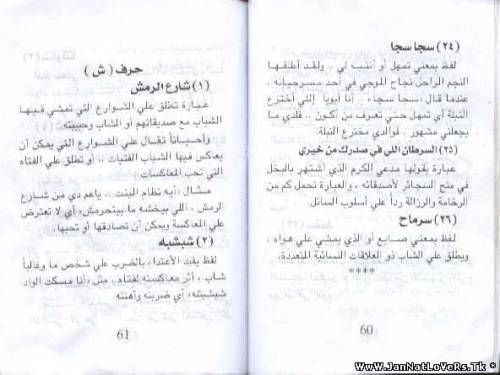 (٢٤) سجا سجا
لفظ بمعني تمهل أو أنتبه لي .. ولقد أطلقها
النجم الراحل نجاح الموجي في أحد مسرحياته ،
عندما قال ، سجا سجا، .. إنا أبويا إللي أخترع
النبلة أي تمهل حتي تعرف من أكون .. فلدي ما
يجعلني مشهور .. فوالدي مخترع النبلة.
(٢٥) السرطان اللي في صدرك من خيري
عبارة يقولها مدعي الكرم الذي أشتهر بالبخل
في منح السجائر لأصدقائه ، والعبارة تحمل كم من
الرخامة والرزالة رداً علي أسلوب السائل.
(٢٦) سرماح
لفظ بمعني صايع أو الذي يمشي علي هواه ،
ويطلق علي الشاب ذو العلاقات النسائية المتعددة.
****
60
حرف ( ش )
(١) شارع الرمش
عبارة تطلق علي الشوارع التي تمشي فيها
الشباب مع صديقاتهم أو الشاب وحبيبته.
وأحياناً تقال علي الشوارع التي يمكن أن
يعاكس فيها الشباب الفتيات .. أو تطلق علي الفتاه
التي تحب المعاكسات
مثال : أيه نظام البنت .. ياعم دي من شارع
الرمش .. اللي بيخشه ما بيتحرمش، أي لا تعترض
علي المعاكسة ويمكن أن تصادقها أو تحبها.
(٢) شبشبه
لفظ يفيد الأعتداء بالضرب علي شخص ما وغالباً
شاب ، أثر معاكسته لفتاه ، مثل ،أنا مسكت الواد
شبشبته، أي ضربته وأهنته
61
WwW.JanNatLoVeRs.Tk *